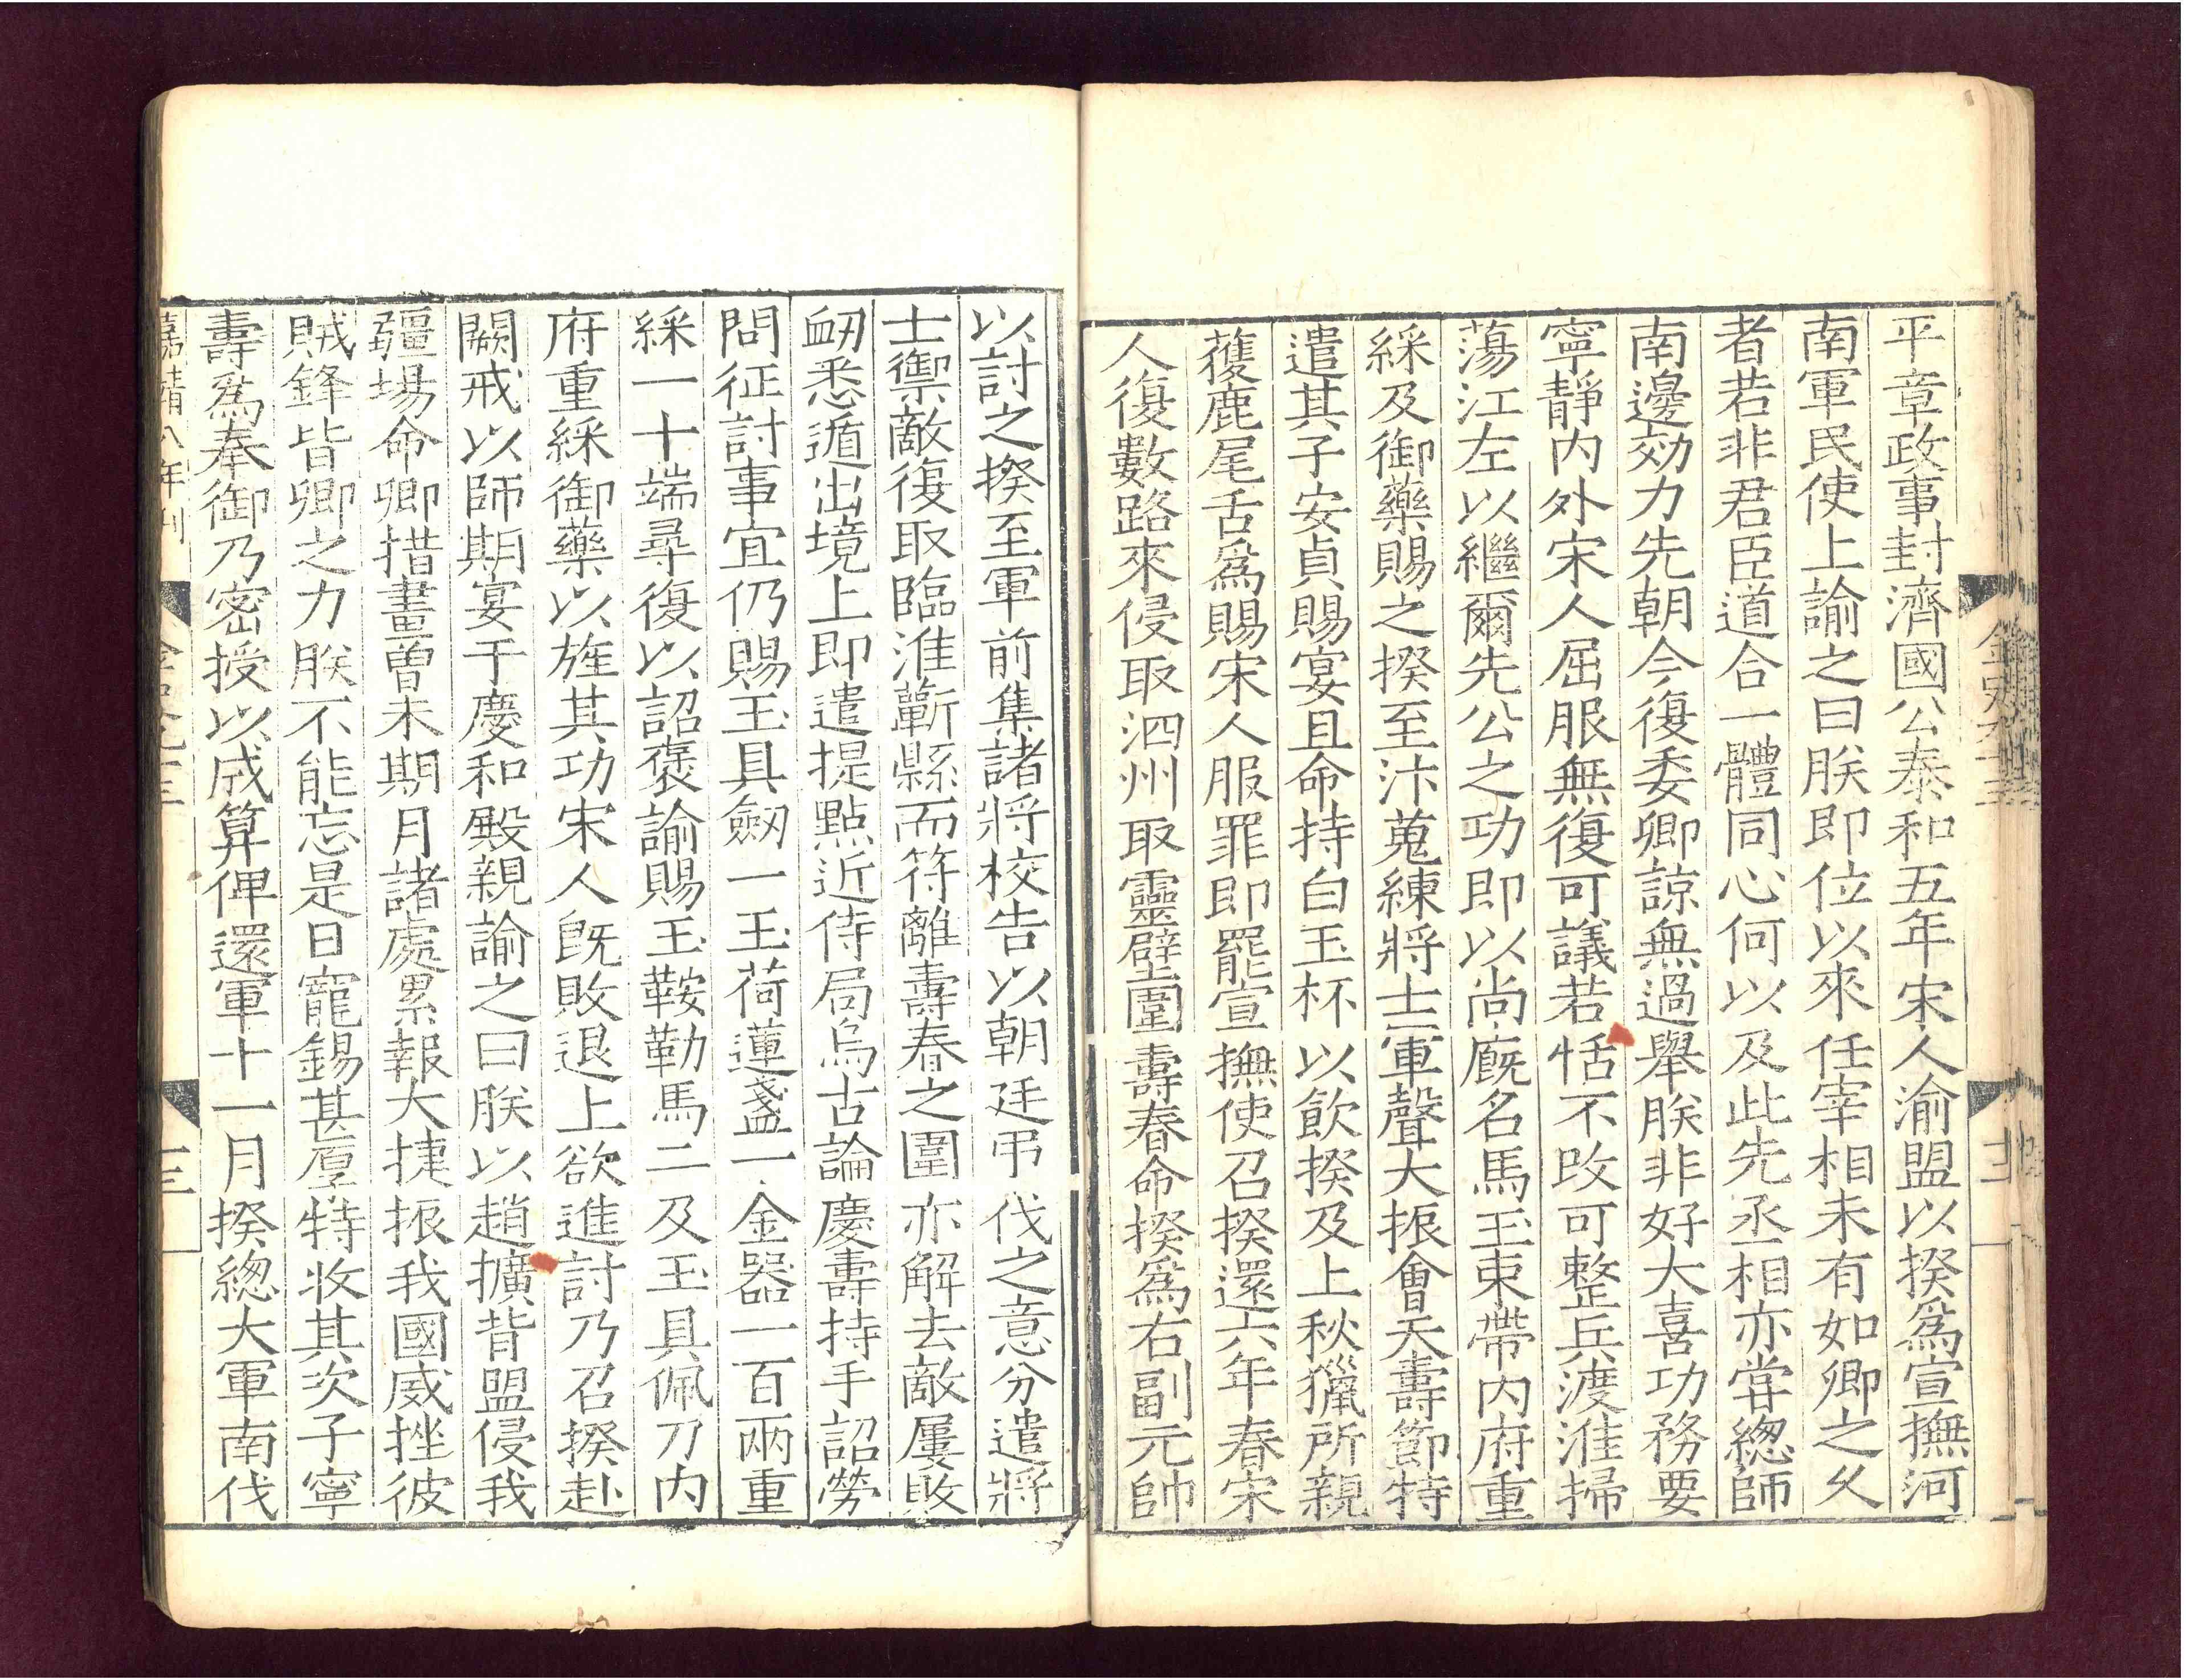 平章政事封濟國公泰和五年宋人渝盟以揆爲宣撫河
南軍民使上諭之曰朕即位以來任宰相未有如卿之久
者若非君臣道合一體同心何以及此先丞相亦嘗總師
南邊効力先朝今復委卿諒無過舉朕非好大喜功務要
寧靜內外宋人屈服無復可議若恬不攺可整兵渡淮掃
蕩江左以繼爾先公之功即以尚廐名馬玉束帶內府重
綵及御藥賜之揆至汴蒐練將士軍聲大振會天壽節特
遣其子安貞賜宴且命持白玉杯以飲揆及上秋獵所親
獲鹿尾舌爲賜宋人服罪即罷宣撫使召揆還六年春宋
人復數路來侵取泗州取靈壁圍壽春命揆爲右副元帥
以討之揆至軍前集諸將校告以朝廷弔伐之意分遣將
士禦敵復取臨淮蘄縣而符離壽春之圍亦解去敵屢敗
衂悉遁出境上即遣提點近侍局烏古論慶壽持手詔勞
問征討事宜仍賜玉具劒一玉荷蓮盞一金器一百兩重
綵一十端尋復以詔褒諭賜玉鞍勒馬二及玉具佩刀內
府重綵御藥以旌其功宋人旣敗退上欲進討乃召揆赴
闕戒以師期宴于慶和殿親諭之曰朕以趙擴背盟侵我
疆場命卿措畫曽未期月諸處累報大捷振我國威挫彼
賊鋒皆卿之力朕不能忘是日寵錫甚厚特收其次子寧
壽爲奉御乃密授以成算俾還軍十一月揆總大軍南伐
嘉靖八年刊
三